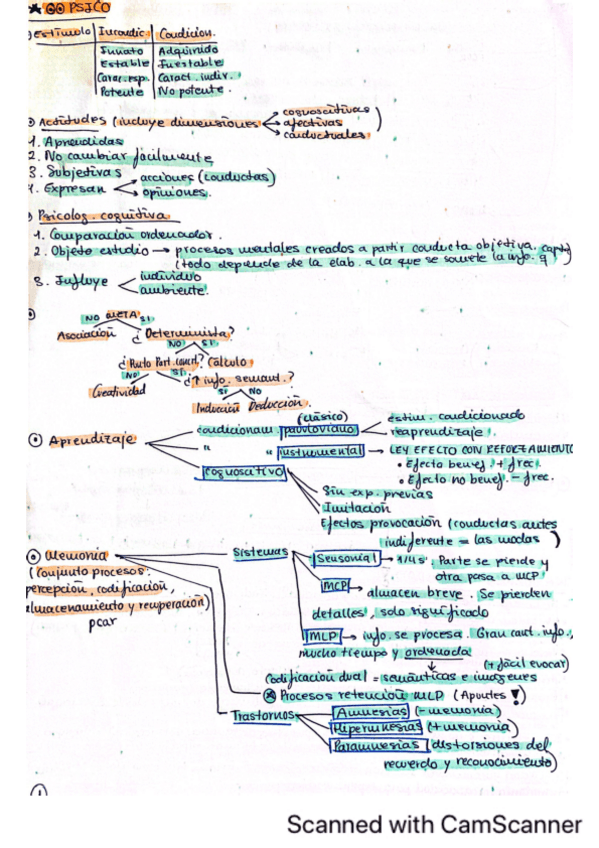 ★ GO PSICO
Estímulo Incondic. Condicion.
Innato Adquirido
Estable Inestable
Carac. esp. Caract. indiv.
Potente No potente.
Actitudes (incluye dimensiones cognoscitivas )
afectivas
conductuales
1. Aprendidas
2. No cambiar fácilmente
3. Subjetivas
4. Expresan acciones (conductas)
opiniones.
Psicolog. cognitiva
1. Comparación ordenador.
2. Objeto estudio → procesos mentales creados a partir conducta objetiva.
(todo depende de la elab. a la que se somete la info. q capt)
3. Influye individuo
ambiente.
NO META SI
Asociación ¿Determinista?
NO SI
¿Punto Part. concl.? Cálculo
NO SI
Creatividad ¿↑ info. semant.?
SI NO
Inducción Deducción.
Aprendizaje condicionam. pavloviano (clásico) estím. condicionado
reaprendizaje.
" instrumental → LEY EFECTO CON REFORZAMIENTO
• Efecto benef. + frec.
• Efecto no benef. - frec.
Cognoscitivo
Sin exp. previas
Imitación
Efectos provocación (conductas antes
indiferente = las modas )
Memoria
(conjunto procesos:
percepción, codificación,
almacenamiento y recuperación)
pcar
Sistemas
Sensorial → 1/4s. Parte se pierde y
otra pasa a MCP
MCP → almacen breve. Se pierden
detalles, solo significado
MLP → info. se procesa. Gran cant. info.,
mucho tiempo y ordenada
(+ fácil evocar)
Codificación dual = semánticas e imágenes
Procesos retención MLP (Apuntes !)
Trastornos Amnesias (- memoria)
Hipermnesias (+ memoria)
Paramnesias (distorsiones del
recuerdo y reconocimiento)
Scanned with CamScanner